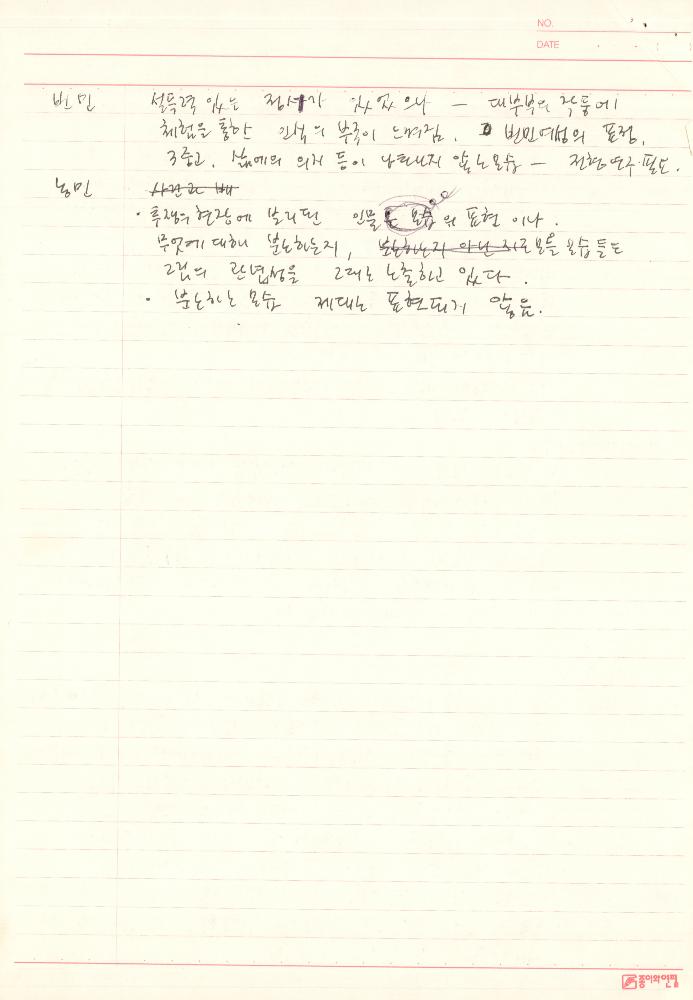 NO.
DATE
빈민 설득력 있는 정서가 있었으나 — 대부분의 작품에
체험을 통한 인식의 부족이 느껴짐. 빈민여성의 표정,
3중고, 삶에의 의지 등이 나타나지 않는 모습 — 전형 연구 필요.
농민 사건과 배
· 투쟁의 현장에 인물 모습의 표현이나.
무엇에 대해 분노하는지, 분노하는지 아닌지 모를 모습들은
그림의 관념성을 그대로 노출하고 있다.
· 분노하는 모습 제대로 표현되지 않음.
종이와연필